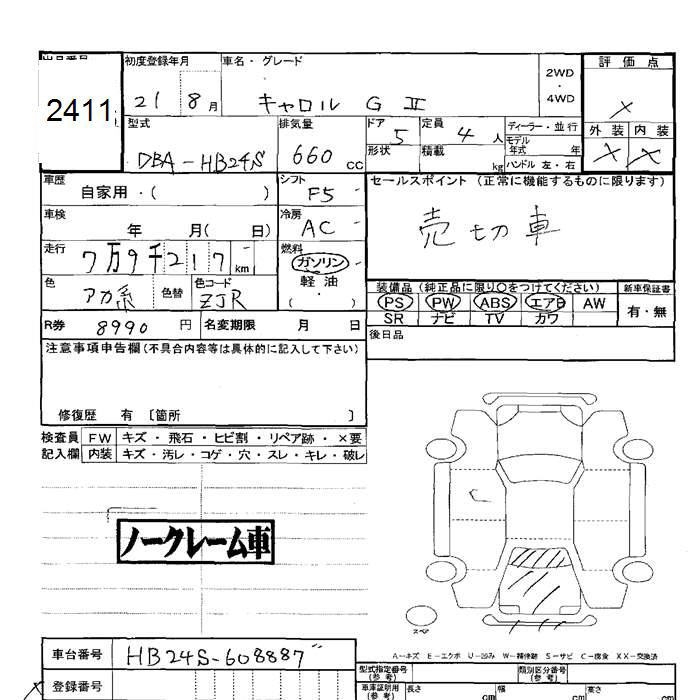 出品番号 初度登録年月 車名・グレード 評価点
2411 21 8月 キャロル G II 2WD・4WD X
型式 排気量 ドア 5 定員 4人 ディーラー・並行 外装 内装
DBA-HB24S 660 CC 形状 積載 kg モデル年式 年 X X
ハンドル 左・右
車歴 自家用・( ) シフト F5 セールスポイント(正常に機能するものに限ります)
車検 年 月( 日) 冷房 AC 売切車
走行 7万9千217 km 燃料 ガソリン 軽油 ・( )
色 アカ系 色替 色コード ZJR 装備品(純正品に限り○をつけてください) 新車保証書
PS PW ABS エアB AW 有・無
SR ナビ TV カワ
R券 8990円 名変期限 月 日 後日品
注意事項申告欄(不具合内容等は具体的に記入して下さい)
修復歴 有 〔箇所 〕
検査員 FW キズ・飛石・ヒビ割・リペア跡・×要
記入欄 内装 キズ・汚レ・コゲ・穴・スレ・キレ・破レ
ノークレーム車
スペア
A―キズ E―エクボ U―凹み W―補修跡 S―サビ C―腐食 XX―交換済
車台番号 HB24S-608887 型式指定番号(参考) 類別区分番号(参考)
登録番号 車庫証明用(参考) 長さ cm 幅 cm 高さ cm